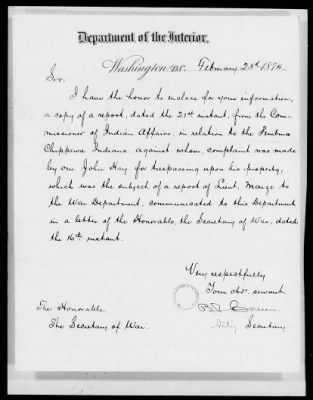 Department of the Interior,
Washington, D.C. February 23d 1874.
Sir:
I have the honor to enclose for your information,
a copy of a report, dated the 21st instant, from the Com-
missioner of Indian Affairs, in relation to the
Chippewa Indians, against whom, complaint was made
by one John Hay, for trespassing upon his property,
which was the subject of a report of Lieut. to
the War Department, communicated to this Department
in a letter of the Honorable, the Secretary of War, dated
the 16th instant.
Very respectfully
Your obt. servant
B.R. Cowen
Actg. Secretary
The Honorable
The Secretary of War.